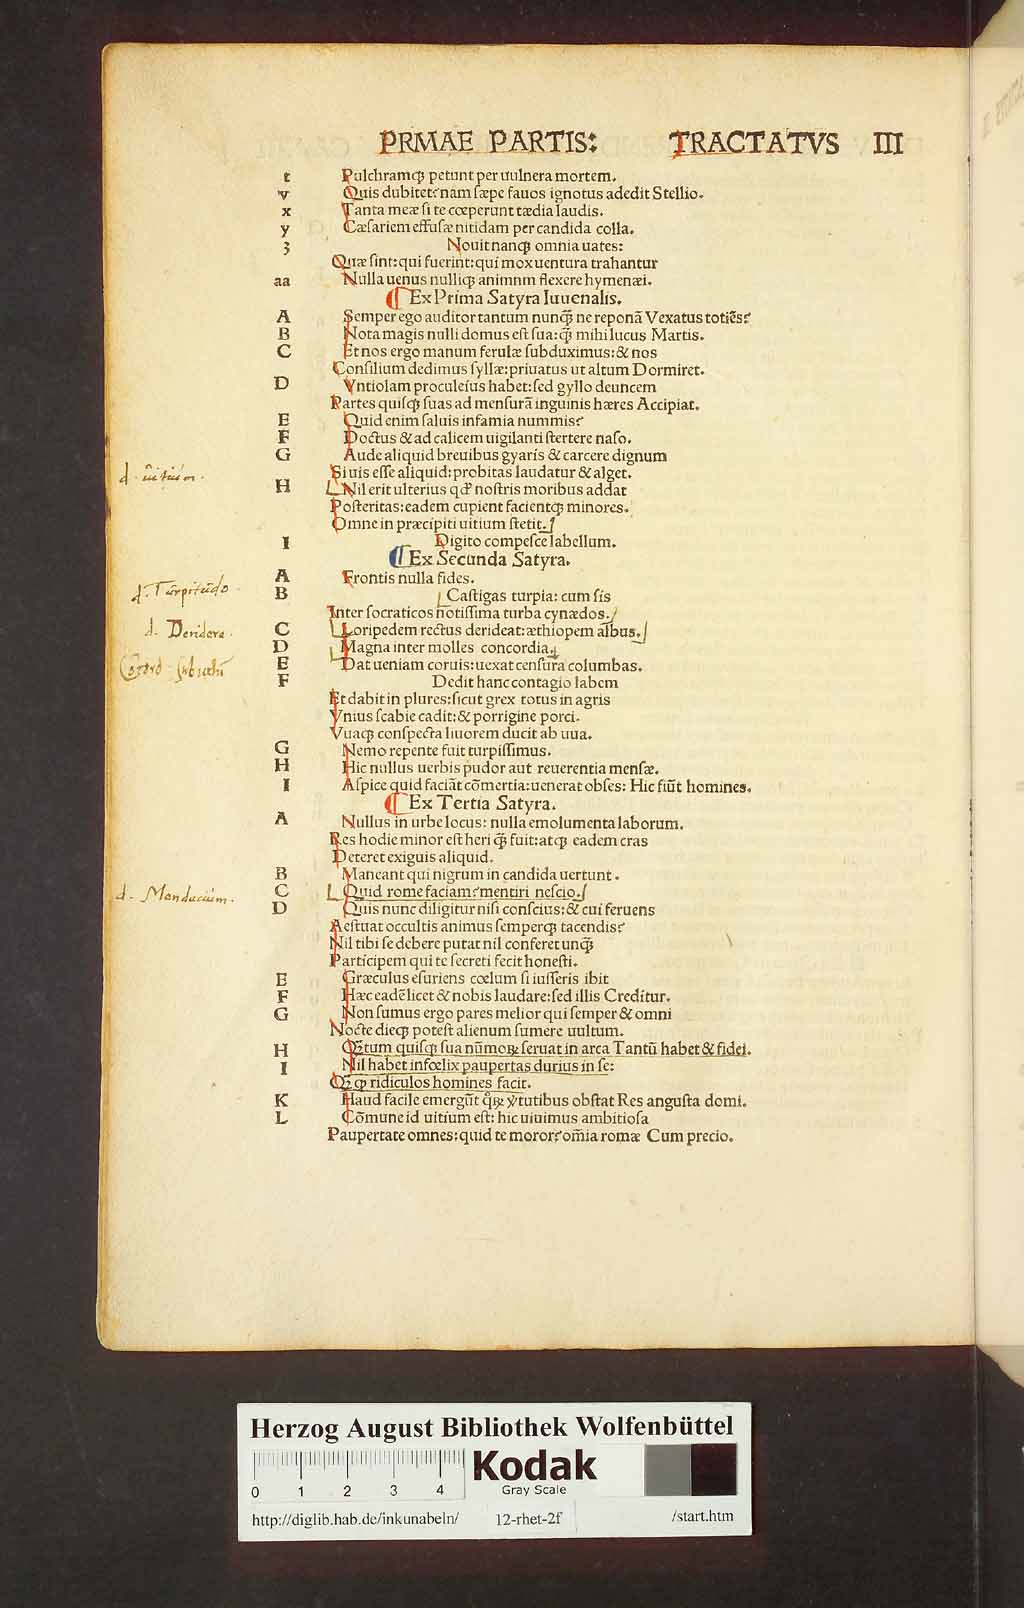 PRMAE PARTIS: TRACTATVS III
t Pulchramqꝫ petunt per uulnera mortem.
v Quis dubitet? nam sæpe fauos ignotus adedit Stellio.
x Tanta meæ si te cœperunt tædia laudis.
y Cæsariem effusæ nitidam per candida colla.
z Nouit nanqꝫ omnia uates:
Quæ sint: qui fuerint: qui mox uentura trahantur
aa Nulla uenus nulliqꝫ animnm flexere hymenæi.
¶ Ex Prima Satyra Iuuenalis.
A Semper ego auditor tantum nunqꝫ̃ ne reponã Vexatus totiẽs?
B Nota magis nulli domus est sua: qꝫ̃ mihi lucus Martis.
C Et nos ergo manum ferulæ subduximus: & nos
Consilium dedimus syllæ: priuatus ut altum Dormiret.
D Vntiolam proculeius habet: sed gyllo deuncem
Partes quisqꝫ suas ad mensurã inguinis hæres Accipiat.
E Quid enim saluis infamia nummis?
F Doctus & ad calicem uigilanti stertere naso.
G Aude aliquid breuibus gyaris & carcere dignum
d. uitium.
Si uis esse aliquid: probitas laudatur & alget.
H Nil erit ulterius qd' nostris moribus addat
Posteritas: eadem cupient facientqꝫ minores.
Omne in præcipiti uitium stetit.
I Digito compesce labellum.
¶ Ex Secunda Satyra.
A Frontis nulla fides.
d. Turpitudo.
B Castigas turpia: cum sis
Inter socraticos notissima turba cynædos.
d. Deridere.
C Loripedem rectus derideat: æthiopem albus.
D Magna inter molles concordia.
E Dat ueniam coruis: uexat censura columbas.
F Dedit hanc contagio labem
Et dabit in plures: sicut grex totus in agris
Vnius scabie cadit: & porrigine porci.
Vuaqꝫ conspecta liuorem ducit ab uua.
G Nemo repente fuit turpissimus.
H Hic nullus uerbis pudor aut reuerentia mensæ.
I Aspice quid faciãt cõmertia: uenerat obses: Hic fiũt homines.
¶ Ex Tertia Satyra.
A Nullus in urbe locus: nulla emolumenta laborum.
Res hodie minor est heri qꝫ̃ fuit: atqꝫ eadem cras
Deteret exiguis aliquid.
B Maneant qui nigrum in candida uertunt.
d. Mendacium.
C Quid rome faciam? mentiri nescio.
D Quis nunc diligitur nisi conscius: & cui feruens
Aestuat occultis animus semperqꝫ tacendis?
Nil tibi se debere putat nil conferet unqꝫ̃
Participem qui te secreti fecit honesti.
E Græculus esuriens cœlum si iusseris ibit
F Hæc eadẽ licet & nobis laudare: sed illis Creditur.
G Non sumus ergo pares melior qui semper & omni
Nocte dieqꝫ potest alienum sumere uultum.
H Qꝫ̃tum quisqꝫ sua nũmoꝝ seruat in arca Tantũ habet & fidei.
I Nil habet infœlix paupertas durius in se:
Qꝫ̃ qꝫ ridiculos homines facit.
K Haud facile emergũt qͦꝝ ỹtutibus obstat Res angusta domi.
L Cõmune id uitium est: hic uiuimus ambitiosa
Paupertate omnes: quid te moror? om̃ia romæ Cum precio.
Herzog August Bibliothek Wolfenbüttel
0 1 2 3 4
Kodak
Gray Scale
http://diglib.hab.de/inkunabeln/ 12-rhet-2f /start.htm